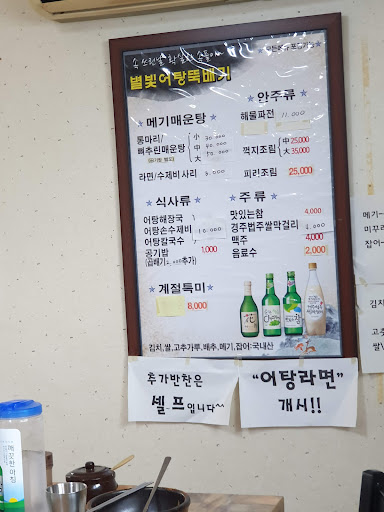 속 쓰린날 확실한 속풀이
별빛어탕뚝배기
메기매운탕
통마리/
뼈추린매운탕
小 30,000
中 40,000
大 50,000
라면/수제비 사리 2,000
식사류
어탕해장국
어탕손수제비 10,000
어탕칼국수
공기밥 1,000
(곱빼기 2,000추가)
계절특미
8,000
안주류
해물파전 11,000
꺽지조림 中 25,000
大 35,000
피리조림 25,000
주류
맛있는참 4,000
경주법주쌀막걸리
맥주 4,000
음료수 2,000
김치,쌀,고추가루,배추,메기,잡어:국내산
추가반찬은
셀프입니다~
"어탕라면"
개시!!
메기
미꾸라
잡어
김치
고추
쌀